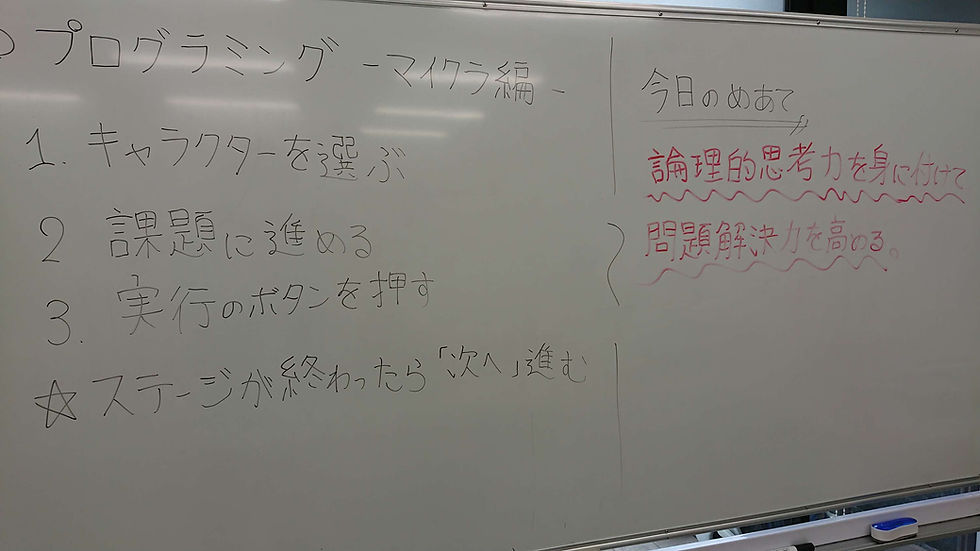 プログラミング -マイクラ編-
1. キャラクターを選ぶ
2 課題に進める
3. 実行のボタンを押す
☆ ステージが終わったら「次へ」進む
今日のめあて
論理的思考力を身に付けて
問題解決力を高める。